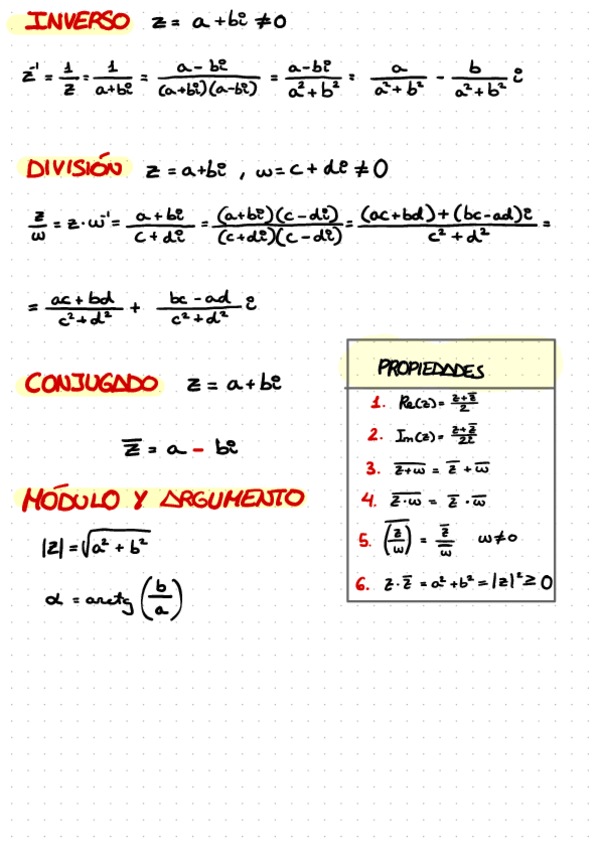 INVERSO z = a + bi ≠ 0
z⁻¹ = 1/z = 1/(a+bi) = (a-bi)/((a+bi)(a-bi)) = (a-bi)/(a²+b²) = a/(a²+b²) - b/(a²+b²) i
DIVISIÓN z = a+bi , ω = c + di ≠ 0
z/ω = z·ω⁻¹ = (a+bi)/(c+di) = ((a+bi)(c-di))/((c+di)(c-di)) = ((ac+bd)+(bc-ad)i)/(c²+d²) =
= (ac+bd)/(c²+d²) + (bc-ad)/(c²+d²) i
CONJUGADO z = a+bi
z̅ = a - bi
MÓDULO Y ARGUMENTO
|z| = √(a²+b²)
α = arctg (b/a)
PROPIEDADES
1. Re(z) = (z+z̅)/2
2. Im(z) = (z+z̅)/2i
3. \overline{z+ω} = z̅ + ω̅
4. \overline{z·ω} = z̅ · ω̅
5. \overline{(z/ω)} = z̅/ω̅ ω≠0
6. z·z̅ = a²+b² = |z|² ≥ 0